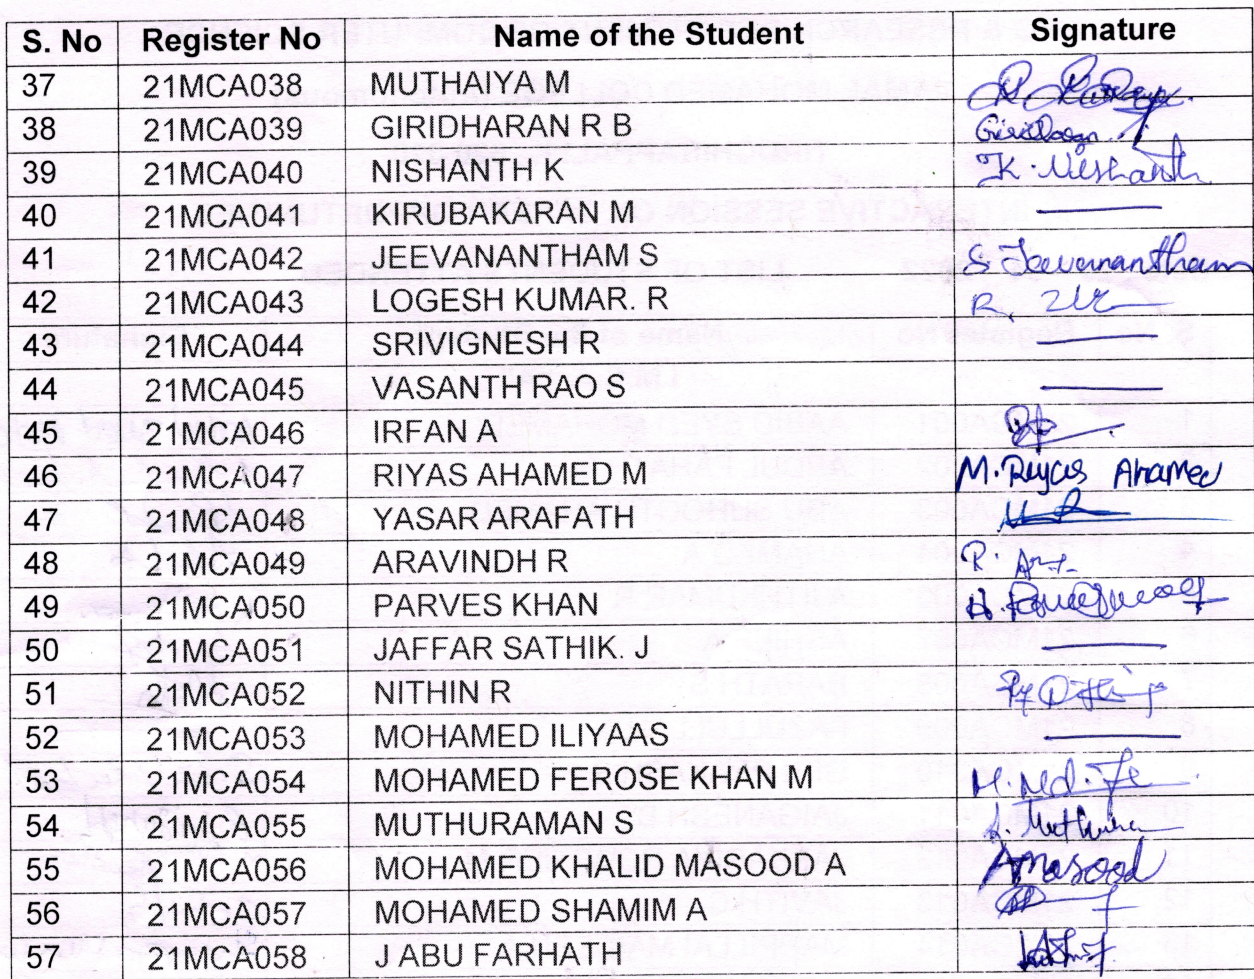 S. No Register No Name of the Student Signature
37 21MCA038 MUTHAIYA M
38 21MCA039 GIRIDHARAN R B
39 21MCA040 NISHANTH K K. Nishanth
40 21MCA041 KIRUBAKARAN M
41 21MCA042 JEEVANANTHAM S S. Jeevanantham
42 21MCA043 LOGESH KUMAR. R R.
43 21MCA044 SRIVIGNESH R
44 21MCA045 VASANTH RAO S
45 21MCA046 IRFAN A
46 21MCA047 RIYAS AHAMED M M. Riyas Ahamed
47 21MCA048 YASAR ARAFATH
48 21MCA049 ARAVINDH R R.
49 21MCA050 PARVES KHAN
50 21MCA051 JAFFAR SATHIK. J
51 21MCA052 NITHIN R
52 21MCA053 MOHAMED ILIYAAS
53 21MCA054 MOHAMED FEROSE KHAN M M. Md. Fe
54 21MCA055 MUTHURAMAN S
55 21MCA056 MOHAMED KHALID MASOOD A A Masood
56 21MCA057 MOHAMED SHAMIM A
57 21MCA058 J ABU FARHATH